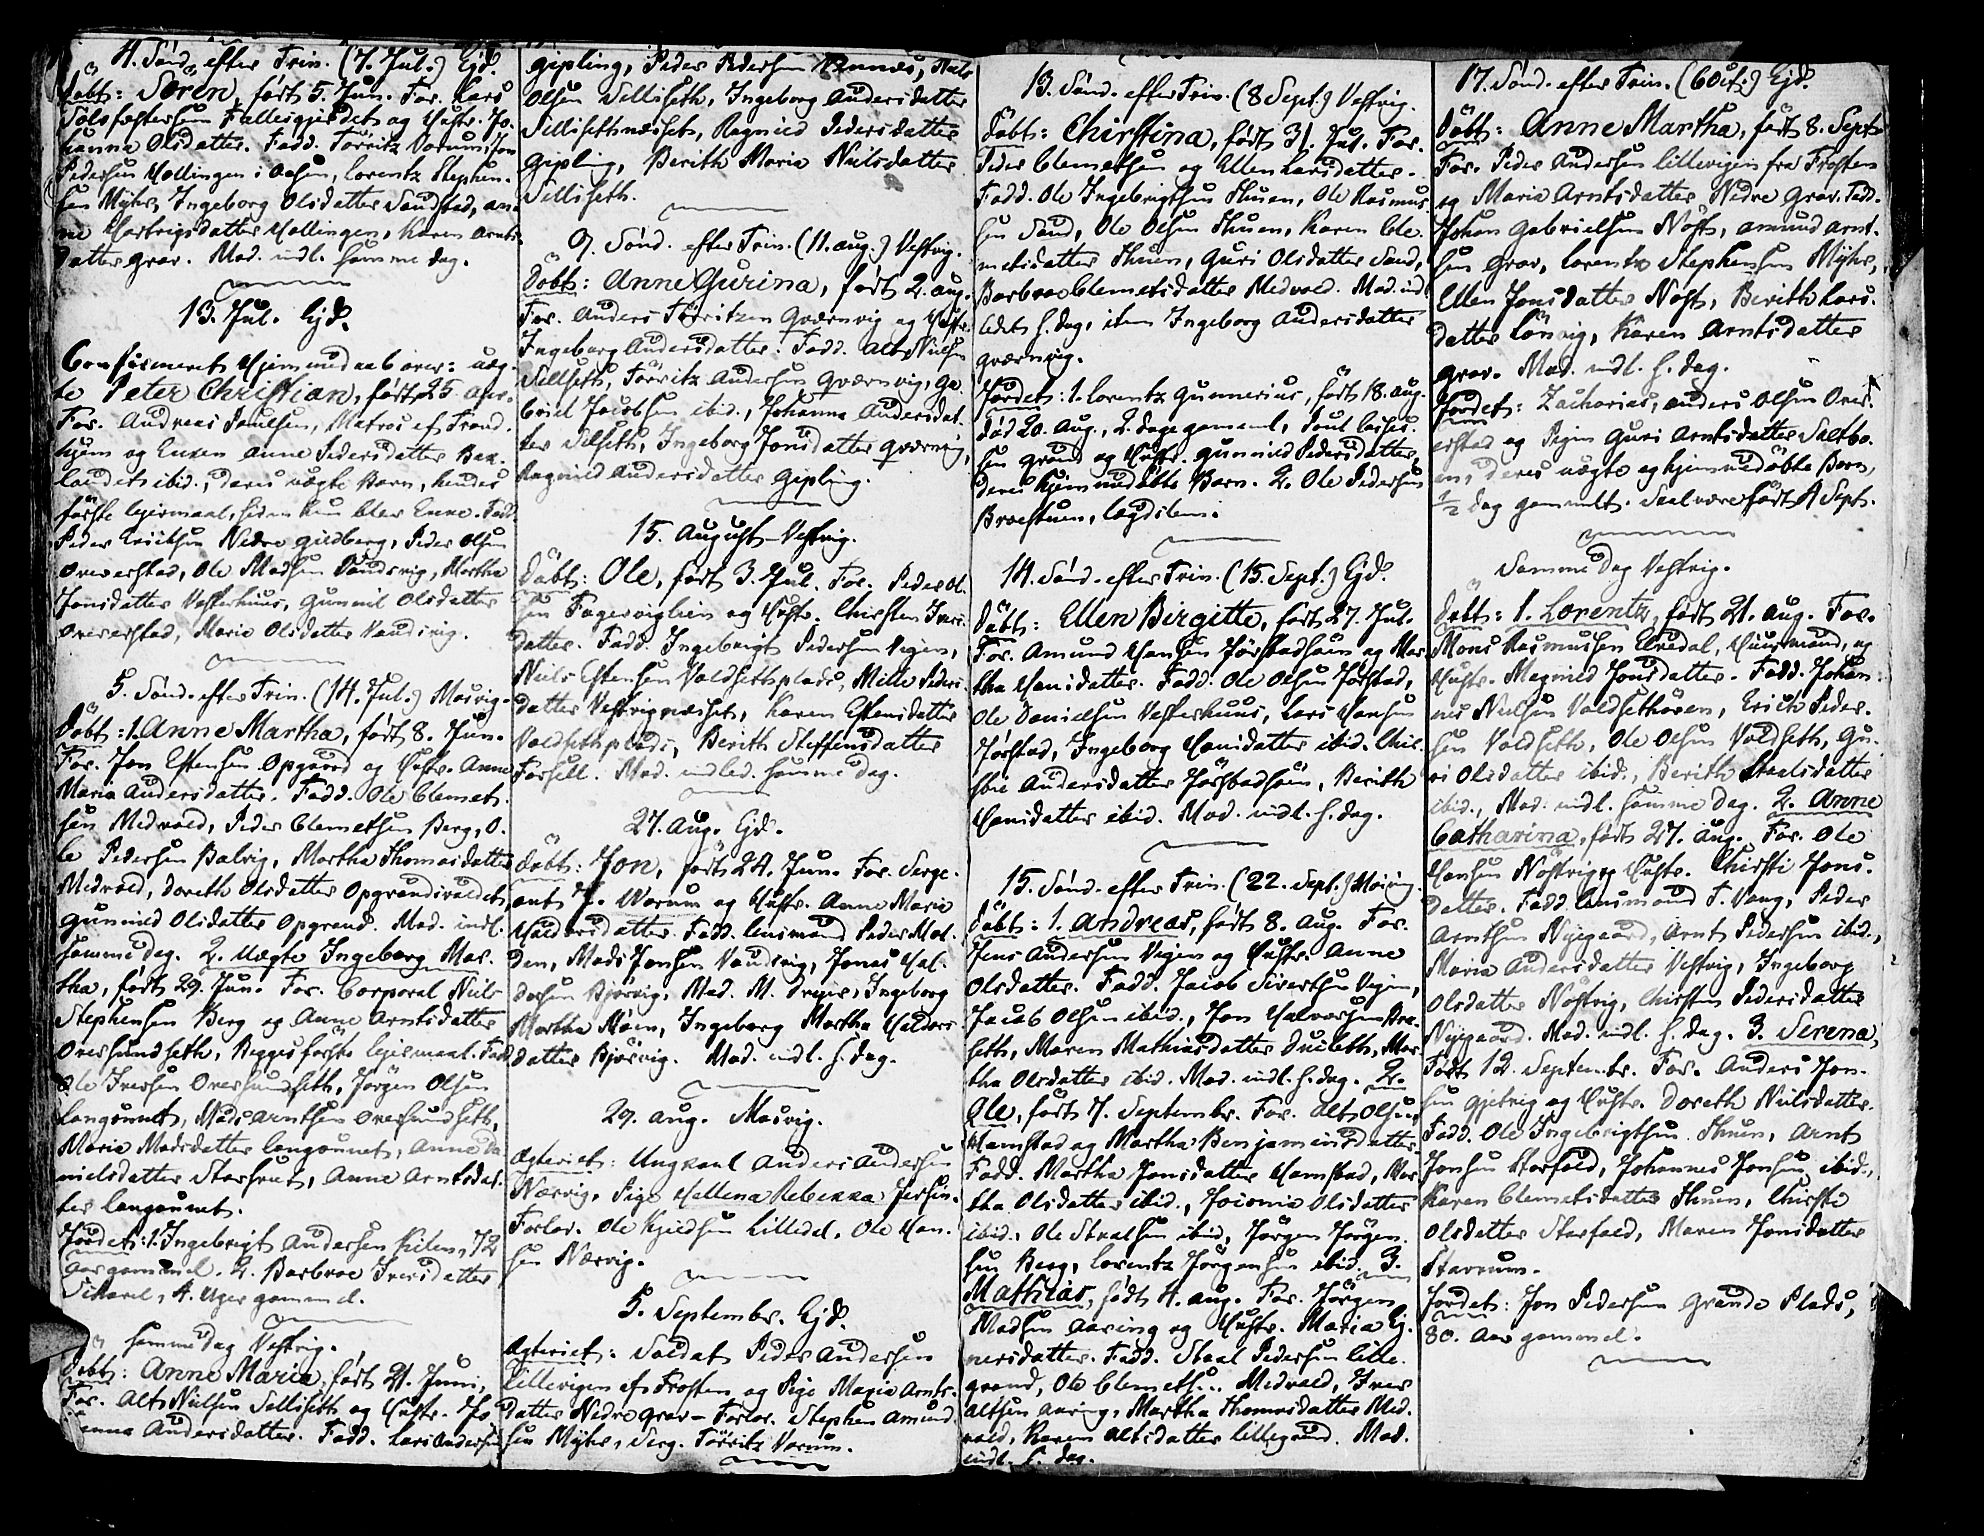 4. Sönd. efter Trin. (7. Jul.) Ejd.
Döbt: Sören, født 5. Jun. For. Lars
Sölfestersen Fallesgierdet og Hustr. Jo-
hanna Olsdatter. Fadd. Törritz Vorum, Jon
Pedersen Hollingen i Aasen, Lorentz Stephen-
sen Myhr, Ingeborg Olsdatter Sandstad, An-
ne Hartvigsdatter Hollingen, Karen Arnts-
datter Grav. Mod. indl. samme dag.
13. Jul. Ejd.
Confirmeret hjemmedaab over: uæg-
te Peter Christian, født 25 Apr.
For. Andreas Poulsen, Matros af Trond-
hjem og Enken Anne Pedersdatter Bak-
landet ibid., deres uægte Barn, hendes
første lejermaal, siden hun blev Enke. Fadd.
Peder Nedre Gildberg, Peder Olsen
Overerstad, Ole Madsen Vandsvig, Martha
Jonsdatter Vesterhuus, Gunnil Olsdatter
Overerstad, Marie Olsdatter Vandsvig.
5. Sönd. efter Trin. (14. Jul.) Mosvig.
Döbt: 1. Anne Martha, født 8. Jun.
For. Jon Estensen Opgaard og Hustr. Anne
Maria Andersdatter. Fadd. Ole Clemet-
sen Medvold, Peder Clemetsen Berg, O-
le Pedersen Valvig, Martha Thomasdatter
Medvold, Doreth Olsdatter Opgrandsvaldet,
Gunnild Olsdatter Opgrand. Mod. indl.
samme dag. 2. Uægte Ingeborg Mar-
tha, født 29. Jun. For. Corporal Niels
Stephensen Berg og Anne Arntsdatter
Oversundseth, Begges første lejermaal. Fadd.
Ole Iversen Oversundseth, Jörgen Olsen
Langöunet, Mads Arntsen Oversundseth,
Maria Madsdatter Langöunet, Anne Da-
nielsdatter Storhout, Anne Arntsdat-
ter Langöunet.
Jordet: 1. Ingebrigt Andersen Kilen, 72
Aar gammel. 2. Barbroe Iversdatter
4. Uger gammel.
Samme dag Vestvig.
Döbt: Anne Maria, født 21. Juni,
For. Alt Nielsen Selliseth og Hustr. Jo-
hanna Andersdatter. Fadd. Lars Andersen
Gipling, Peder Pedersen Nonnes, Niels
Olsen Selliseth, Ingeborg Andersdatter
Sellisethnæsset, Ragnild Pedersdatter
Gipling, Berith Maria Nielsdatter
Selliseth.
9. Sönd. efter Trin. (11. Aug.) Vestvig.
Döbt: Anne Gurina, født 2. Aug.
For. Anders Törritzen Qværnvig og Hustr.
Ingeborg Andersdatter. Fadd. Alt Nielsen
Selliseth, Törritz Andersen Qværnvig, Ga-
briel Jacobsen ibid., Johanna Andersdat-
ter Selliseth, Ingeborg Jonsdatter Qværnvig,
Ragnild Andersdatter Gipling.
15. August Vestvig.
Döbt: Ole, født 3. Jul. For. Peder Ol-
sen Fagervighein og Hustr. Kirsten Ivers-
datter. Fadd. Ingebrigt Pedersen Vigen,
Niels Estensen Valdsethplads, Mille Peders-
datter Vestvignæsset, Karen Estensdatter
Valdsethplads, Berith Steffensdatter
Forsell. Mod. indled. samme dag.
27. Aug. Ejd.
Döbt: Jon, født 24. Jun. For. Serge-
ant T. Vorum og Hustr. Anne Marie
Haldorsdatter. Fadd. Lensmand Peder Mol-
den, Mads Jonsen Vandsvig, Jonas Hal-
dorsen Björvig, Mad. M. Dreier, Ingeborg
Martha Moen, Ingeborg Martha Haldors-
datter Björvig. Mod. indl. s. dag.
29. Aug. Mosvig.
Ægteviet: Ungkarl Anders Andersen
Nævig, Pige Hellena Rebekka
Forlov. Ole Kjeldsen Lilledel, Ole Han-
sen Nævig.
5. Septembr. Ejd.
Ægteviet: Soldat Peder Andersen
Lillevigen af Frosten og Pige Maria Arnts-
datter Nedre Grav – Forlov. Stephen Amund-
sen Myhr, Serg. Törritz Vorum.
13. Sönd. efter Trin. (8 Sept.) Vestvig.
Döbt: Chirstina, født 31. Jul. For.
Peder Clemetsen og Ellen Larsdatter.
Fadd. Ole Ingebrigtsen Thuen, Ole Rasmus-
sen Sand, Ole Olsen Thuen, Karen Cle-
metsdatter Thuen, Guri Olsdatter Sand,
Barbroe Clemetsdatter Medvold. Mod. ind-
ledt s. dag, item Ingeborg Andersdatter
Qværnvig.
Jordet: 1. Lorentz Gunnerius, født 18. Aug.
död 20. Aug., 2. dage gammel, Poul Lasses-
sen Grand og Hustr. Gunnild Pedersdatters
deres hjemmedöbte Barn. 2. Ole Pedersen
Braestuen, Lægdslem.
14. Sönd. efter Trin. (15. Sept.) Ejd.
Döbt: Ellen Birgitte, født 27. Jul.
For. Amund Hansen Jörstadhaun og Mar-
tha Hansdatter. Fadd. Ole Olsen Jörstad,
Ole Danielsen Vesterhuus, Lars Hansen
Jörstad, Ingeborg Hansdatter ibid. Chir-
stie Andersdatter Jörstadhaun, Berith
Hansdatter ibid. Mod. indl. s. dag.
15. Sönd. efter Trin. (22. Sept.) Mosvig.
Döbt: 1. Andreas, født 8. Aug. For.
Jens Andersen Vigen og Hustr. Anne
Olsdatter. Fadd. Jacob Sivertsen Vigen,
Jacob Olsen ibid., Jon Halvorsen Dra-
seth, Maren Mathiasdatter Dueleth, Mar-
tha Olsdatter ibid. Mod. indl. s. dag. 2.
Ole, født 7. Septembr. For. Alt Olsen
Hamstad og Martha Benjaminsdatter.
Fadd. Martha Jonsdatter Hamstad, Mar-
tha Olsdatter ibid., Joronia Olsdatter
ibid. Ole Straalsen ibid, Jörgen Jörgen-
sen Berg, Lorentz Jörgensen ibid. 3.
Mathias, født 4. Aug. For. Jörgen
Madsen Aaring og Hustr. Maria Ej-
nersdatter. Fadd. Staal Pedersen Lille-
grand, Ole Clemets.. Medvold, Iver
Altsen Aaring, Martha Thomasdatter Med-
vold, Karen Altsdatter Lillegrand. Mod.
indl. s. dag.
17. Sönd. efter Trin. (6 Oct.) Ejd.
Döbt: Anne Martha, født 8. Sept.
For. Peder Andersen Lillevigen fra Frosten
og Maria Arntsdatter Nedre Grav. Fadd.
Johan Gabrielsen Nöst, Amund Arnt-
sen Grav, Lorentz Stephensen Myhr,
Ellen Jonsdatter Nöst, Berith Lars-
datter Lönvig, Karen Arntsdatter
Grav. Mod. indl. s. dag.
Jordet: Zacharias, Anders Olsen Over-
erstad og Pigen Guri Arntsdatter Saltbo-
en, deres uægte og hjemmedöbte Barn,
1/2 dag gammelt. Skal være født 4 Sept.
Samme dag Vestvig.
Döbt: 1. Lorentz, født 21. Aug. For.
Mons Rasmussen Elvedal, Huusmand, og
Hustr. Magnild Jonsdatter. Fadd. Johan-
nes Nielsen Valdsethören, Erich Peder-
sen Valdseth, Ole Olsen Valdseth, Gu-
ri Olsdatter ibid., Berith Staalsdatter
ibid., Mod. indl. samme dag. 2. Anne
Catharina, født 27. Aug. For. Ole
Hansen Nöstvig og Hustr. Chirsti Jons-
datter. Fadd. Lensmand T. Vang, Peder
Arntsen Nyegaard, Arnt Pedersen ibid.,
Maria Andersdatter Vestvig, Ingeborg
Olsdatter Nöstvig, Chirsten Pedersdatter
Nyegaard. Mod. indl. s. dag. 3. Serena,
født 12. Septembr. For. Anders Jon-
sen Gjetvig og Hustr. Doreth Nielsdatter.
Fadd. Ole Ingebrigtsen Thuen, Arnt
Jonsen Storfald, Johannes Jonsen ibid.,
Karen Clemetsdatter Thuen, Chirsti
Olsdatter Storfald, Maren Jonsdatter
Stavrum.
Jordet: Jon Pedersen Grande Plads,
80. Aar gammel.